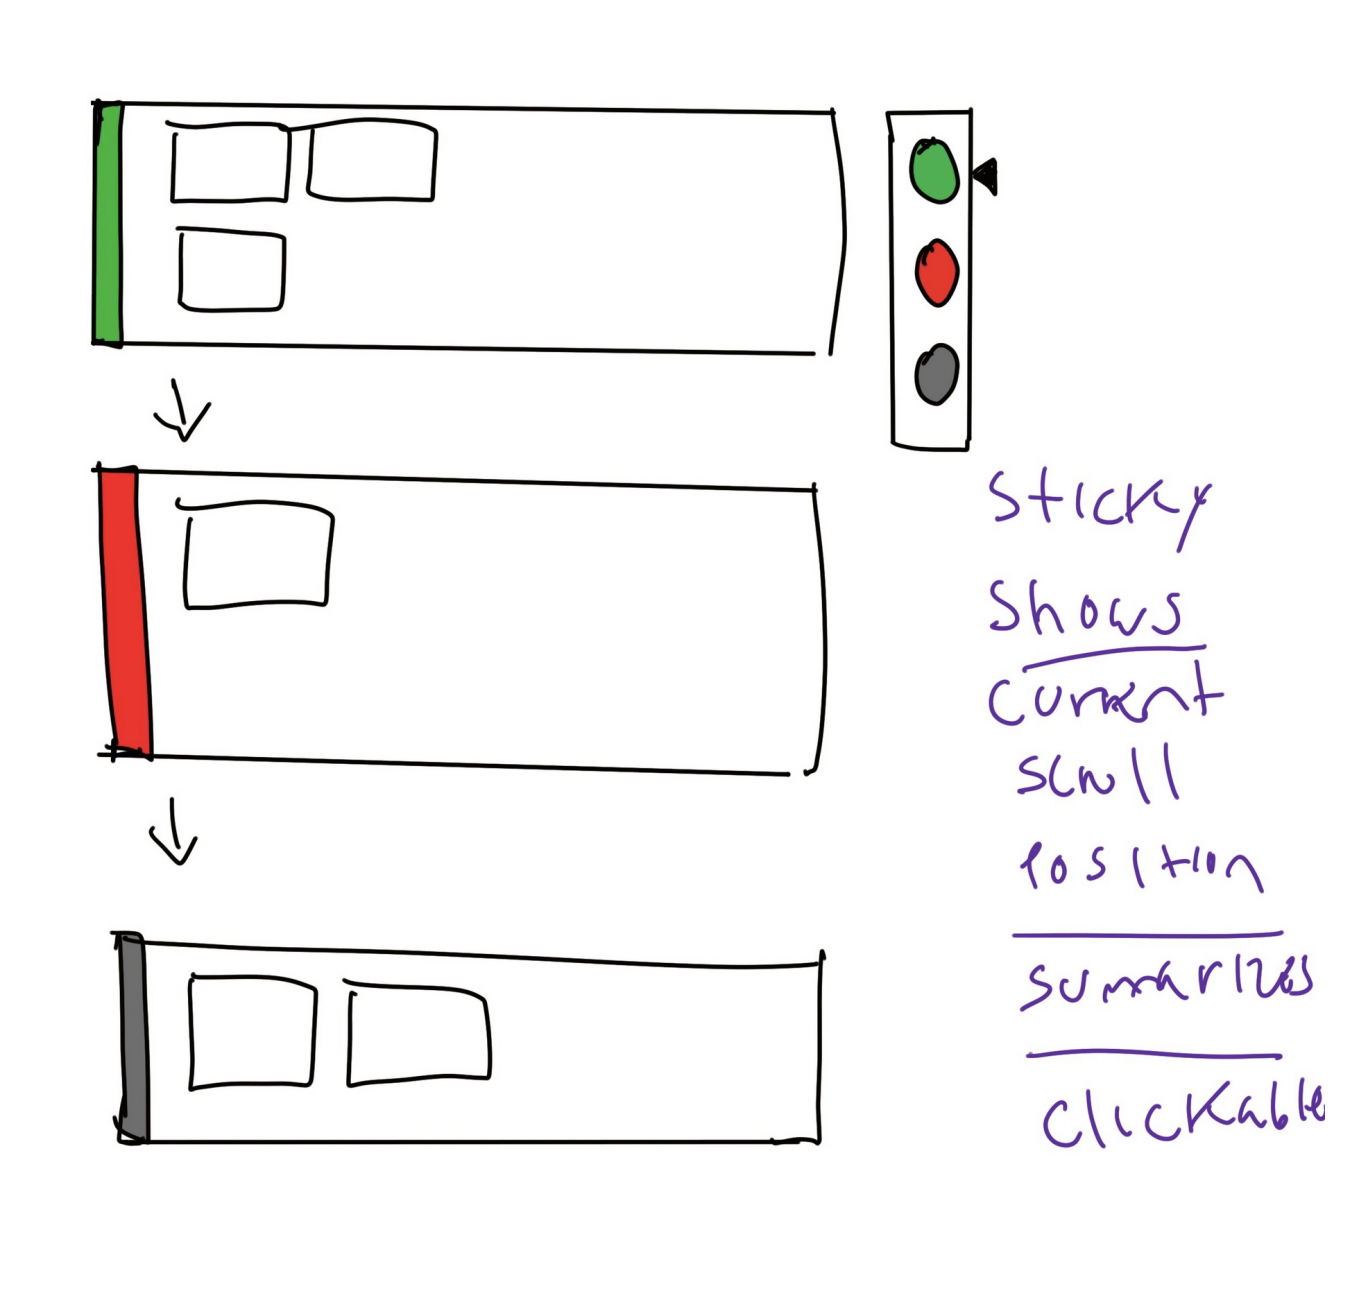 sticky
shows
current
scroll
position
summarizes
clickable